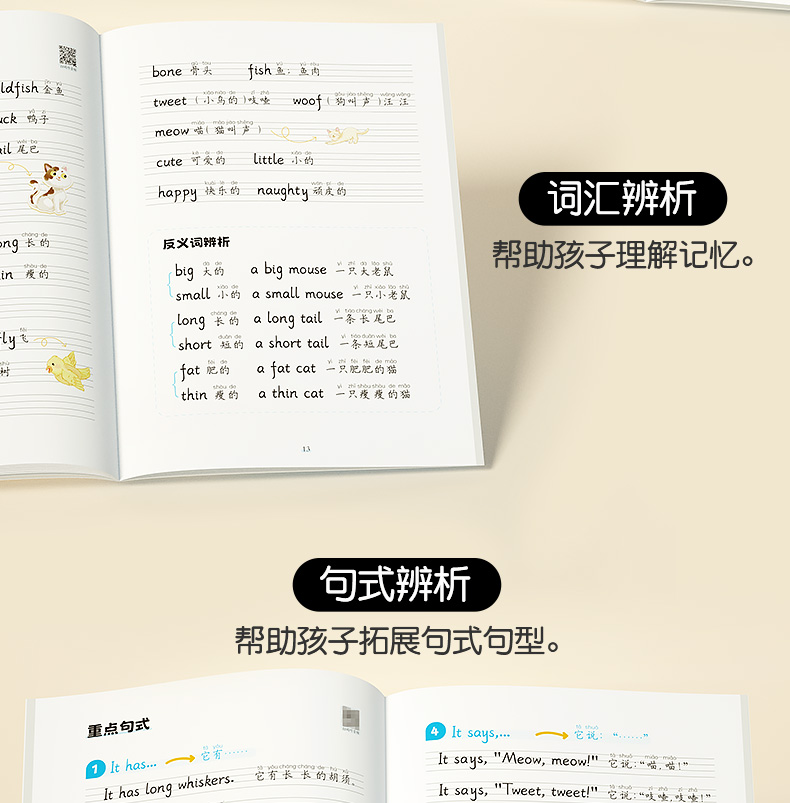 bone 骨头 fish 鱼；鱼肉
ldfish 金鱼
tweet（小鸟的）吱喳 woof（狗叫声）汪汪
uck 鸭子
meow 喵（猫叫声）
ail 尾巴
cute 可爱的 little 小的
happy 快乐的 naughty 顽皮的
反义词辨析
ong 长的
big 大的 a big mouse 一只大老鼠
in 瘦的
small 小的 a small mouse 一只小老鼠
long 长的 a long tail 一条长尾巴
fly 飞
short 短的 a short tail 一条短尾巴
树
fat 肥的 a fat cat 一只肥肥的猫
thin 瘦的 a thin cat 一只瘦瘦的猫
13
词汇辨析
帮助孩子理解记忆。
句式辨析
帮助孩子拓展句式句型。
重点句式
1 It has... 它有……
It has long whiskers. 它有长长的胡须。
4 It says,... 它说：“……”
It says, "Meow, meow!" 它说：“喵，喵！”
It says, "Tweet, tweet!" 它说：“吱喳，吱喳！”